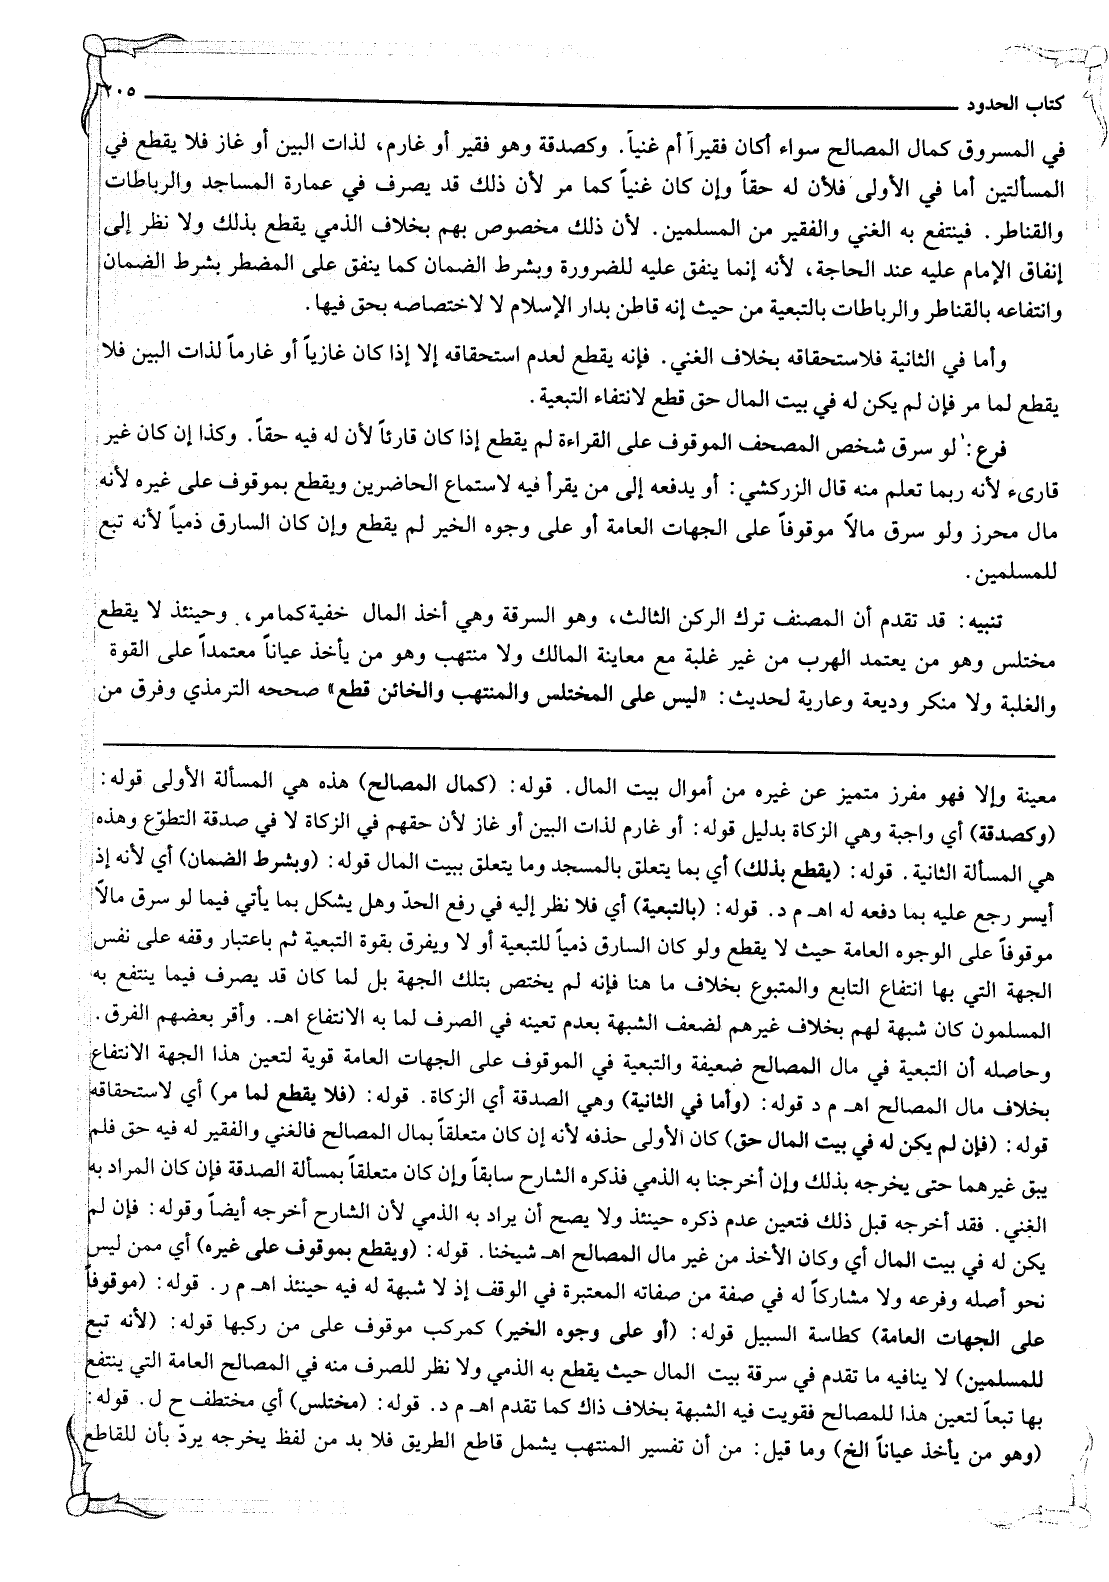 كتاب الحدود
٢٠٥
في المسروق كمال المصالح سواء أكان فقيراً أم غنياً. وكصدقة وهو فقير أو غارم، لذات البين أو غاز فلا يقطع في
المسألتين أما في الأولى فلأن له حقاً وإن كان غنياً كما مر لأن ذلك قد يصرف في عمارة المساجد والرباطات
والقناطر. فينتفع به الغني والفقير من المسلمين. لأن ذلك مخصوص بهم بخلاف الذمي يقطع بذلك ولا نظر إلى
إنفاق الإمام عليه عند الحاجة، لأنه إنما ينفق عليه للضرورة وبشرط الضمان كما ينفق على المضطر بشرط الضمان
وانتفاعه بالقناطر والرباطات بالتبعية من حيث إنه قاطن بدار الإسلام لا لاختصاصه بحق فيها.
وأما في الثانية فلاستحقاقه بخلاف الغني. فإنه يقطع لعدم استحقاقه إلا إذا كان غازياً أو غارماً لذات البين فلا
يقطع لما مر فإن لم يكن له في بيت المال حق قطع لانتفاء التبعية.
فرع: لو سرق شخص المصحف الموقوف على القراءة لم يقطع إذا كان قارئاً لأن له فيه حقاً. وكذا إن كان غير
قارىء لأنه ربما تعلم منه قال الزركشي: أو يدفعه إلى من يقرأ فيه لاستماع الحاضرين ويقطع بموقوف على غيره لأنه
مال محرز ولو سرق مالاً موقوفاً على الجهات العامة أو على وجوه الخير لم يقطع وإن كان السارق ذمياً لأنه تبع
للمسلمين.
تنبيه: قد تقدم أن المصنف ترك الركن الثالث، وهو السرقة وهي أخذ المال خفية كما مر، وحينئذ لا يقطع
مختلس وهو من يعتمد الهرب من غير غلبة مع معاينة المالك ولا منتهب وهو من يأخذ عياناً معتمداً على القوة
والغلبة ولا منكر وديعة وعارية لحديث: «ليس على المختلس والمنتهب والخائن قطع» صححه الترمذي وفرق من
معينة وإلا فهو مفرز متميز عن غيره من أموال بيت المال. قوله: (كمال المصالح) هذه هي المسألة الأولى قوله:
(وكصدقة) أي واجبة وهي الزكاة بدليل قوله: أو غارم لذات البين أو غاز لأن حقهم في الزكاة لا في صدقة التطوّع وهذه
هي المسألة الثانية. قوله: (يقطع بذلك) أي بما يتعلق بالمسجد وما يتعلق ببيت المال قوله: (وبشرط الضمان) أي لأنه إذ
أيسر رجع عليه بما دفعه له اهـ م د. قوله: (بالتبعية) أي فلا نظر إليه في رفع الحدّ وهل يشكل بما يأتي فيما لو سرق مالاً
موقوفاً على الوجوه العامة حيث لا يقطع ولو كان السارق ذمياً للتبعية أو لا ويفرق بقوة التبعية ثم باعتبار وقفه على نفس
الجهة التي بها انتفاع التابع والمتبوع بخلاف ما هنا فإنه لم يختص بتلك الجهة بل لما كان قد يصرف فيما ينتفع به
المسلمون كان شبهة لهم بخلاف غيرهم لضعف الشبهة بعدم تعينه في الصرف لما به الانتفاع اهـ. وأقر بعضهم الفرق.
وحاصله أن التبعية في مال المصالح ضعيفة والتبعية في الموقوف على الجهات العامة قوية لتعين هذا الجهة الانتفاع
بخلاف مال المصالح اهـ م د قوله: (وأما في الثانية) وهي الصدقة أي الزكاة. قوله: (فلا يقطع لما مر) أي لاستحقاقه
قوله: (فإن لم يكن له في بيت المال حق) كان الأولى حذفه لأنه إن كان متعلقاً بمال المصالح فالغني والفقير له فيه حق فلم
يبق غيرهما حتى يخرجه بذلك وإن أخرجنا به الذمي فذكره الشارح سابقاً وإن كان متعلقاً بمسألة الصدقة فإن كان المراد به
الغني. فقد أخرجه قبل ذلك فتعين عدم ذكره حينئذ ولا يصح أن يراد به الذمي لأن الشارح أخرجه أيضاً وقوله: فإن لم
يكن له في بيت المال أي وكان الأخذ من غير مال المصالح اهـ شيخنا. قوله: (ويقطع بموقوف على غيره) أي ممن ليس
نحو أصله وفرعه ولا مشاركاً له في صفة من صفاته المعتبرة في الوقف إذ لا شبهة له فيه حينئذ اهـ م ر. قوله: (موقوفاً
على الجهات العامة) كطاسة السبيل قوله: (أو على وجوه الخير) كمركب موقوف على من ركبها قوله: (لأنه تبع
للمسلمين) لا ينافيه ما تقدم في سرقة بيت المال حيث يقطع به الذمي ولا نظر للصرف منه في المصالح العامة التي ينتفع
بها تبعاً لتعين هذا للمصالح فقويت فيه الشبهة بخلاف ذاك كما تقدم اهـ م د. قوله: (مختلس) أي مختطف ح ل. قوله:
(وهو من يأخذ عياناً الخ) وما قيل: من أن تفسير المنتهب يشمل قاطع الطريق فلا بد من لفظ يخرجه يردّ بأن للقاطع